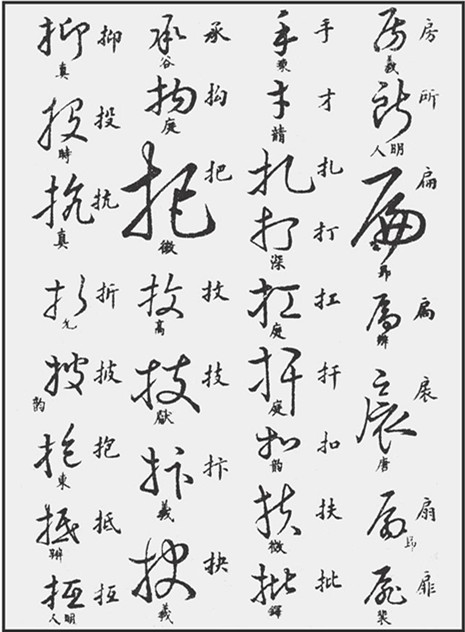 房所扁展扇扉
房所扁展扇扉
羲 明人 昂 辨 唐 昂 裴
手才扎打扛扞扣扶批
手才扎打扛扞扣扶批
靖 深 庭 庭 韵 徵 鐸
承抅把技抃抉
承抅把技抃抉
谷 庭 徵 高 献 羲 羲
抑投抗折披抱抵拒
抑投抗折披抱抵拒
真 時 真 允 韵 東 辨 明人